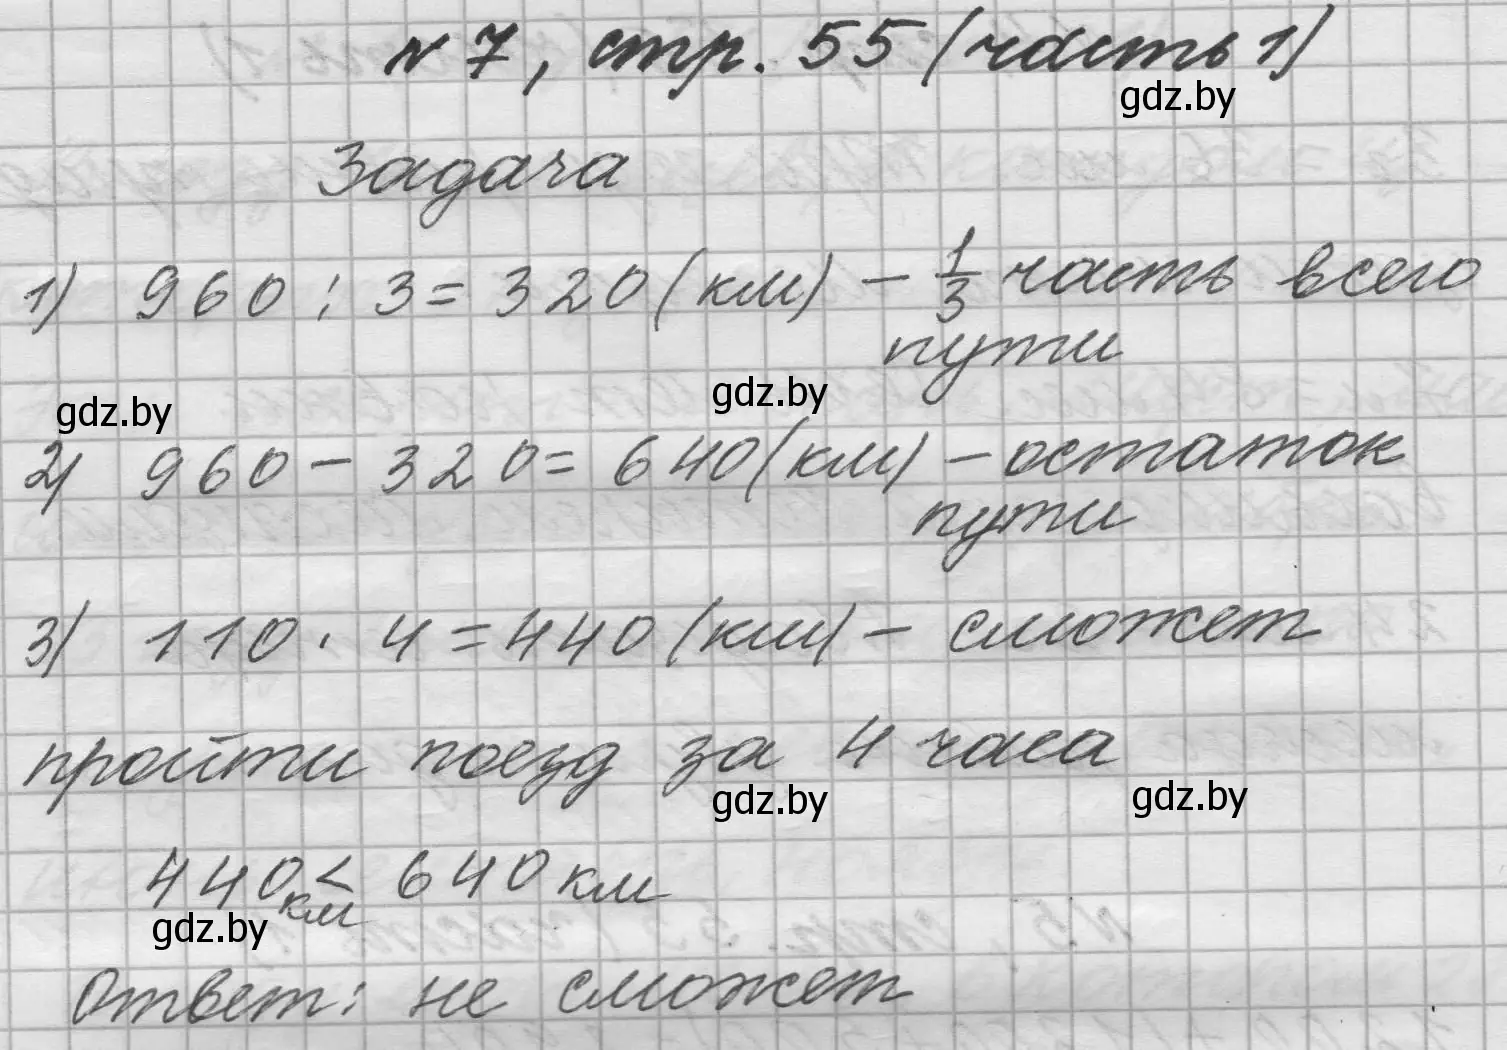 № 7, стр. 55 (часть 1)
gdz.by
Задача
1) 960 : 3 = 320 (км) – 1/3 часть всего
пути
gdz.by
gdz.by
2) 960 – 320 = 640 (км) – остаток
пути
3) 110 · 4 = 440 (км) – сможет
пройти поезд за 4 часа
gdz.by
gdz.by
440 км < 640 км
gdz.by
Ответ: не сможет